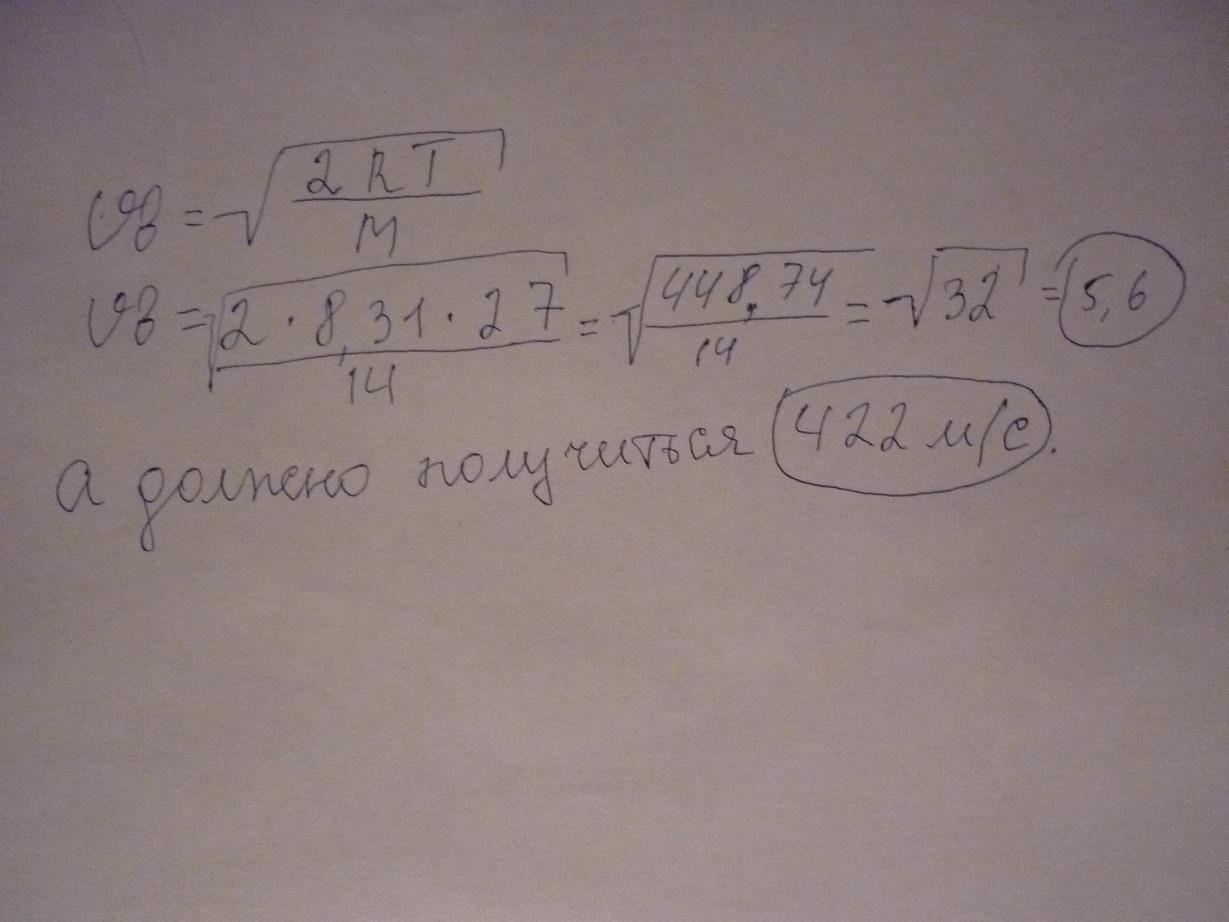 υв = √(2RT/M)
υв = √(2 · 8,31 · 27/14) = √(448,74/14) = √32 = 5,6
а должно получиться 422 м/с.